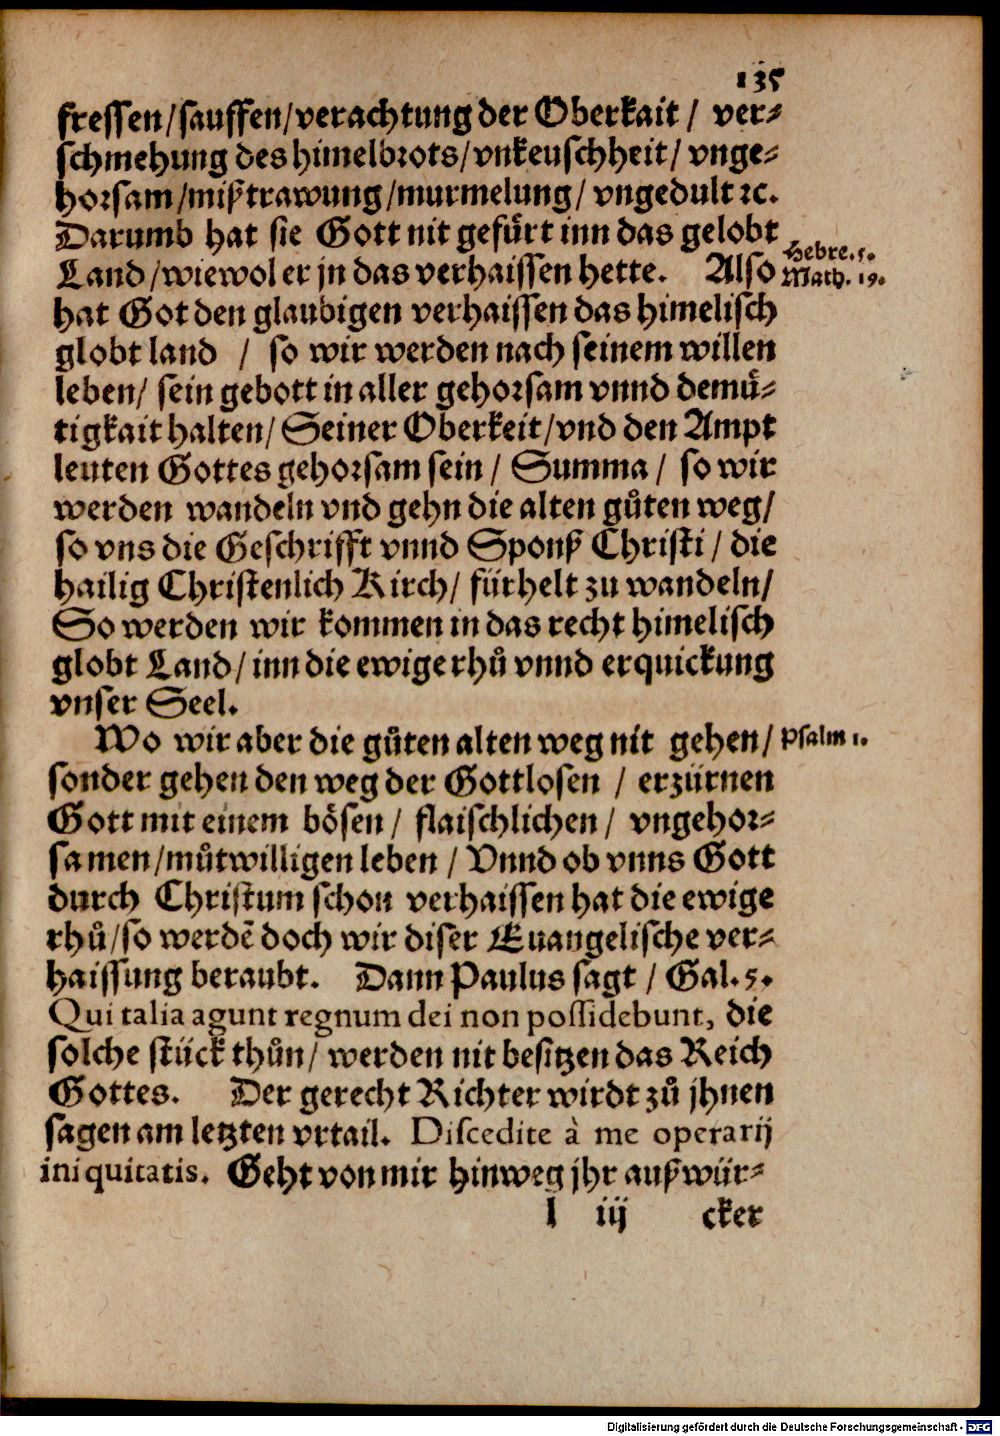 135
fressen/sauffen/verachtung der Oberkait/ ver-
schmehung des himelbrots/vnkeuschheit/ vnge-
horsam/mißtrawung/murmelung/ vngedult ꝛc.
Darumb hat sie Gott nit gefürt inn das gelobt
Land/wiewol er jn das verhaissen hette. Also
Hebre. 5.
Math. 19.
hat Got den glaubigen verhaissen das himelisch
globt land / so wir werden nach seinem willen
leben/ sein gebott in aller gehorsam vnnd demuͤ-
tigkait halten/ Seiner Oberkeit/vnd den Ampt
leuten Gottes gehorsam sein/ Summa/ so wir
werden wandeln vnd gehn die alten guͦten weg/
so vns die Geschrifft vnnd Sponß Christi/ die
hailig Christenlich Kirch/ fürhelt zu wandeln/
So werden wir kommen in das recht himelisch
globt Land/inn die ewige rhuͦ vnnd erquickung
vnser Seel.
Wo wir aber die guͦten alten weg nit gehen/
Psalm 1.
sonder gehen den weg der Gottlosen / erzürnen
Gott mit einem bösen/ flaischlichen/ vngehor-
samen/muͦtwilligen leben/ Vnnd ob vnns Gott
durch Christum schon verhaissen hat die ewige
rhuͦ/so werdē doch wir diser Euangelische ver-
haissung beraubt. Dann Paulus sagt/ Gal. 5.
Qui talia agunt regnum dei non possidebunt, die
solche stück thuͦn/ werden nit besitzen das Reich
Gottes. Der gerecht Richter wirdt zuͦ jhnen
sagen am letzten vrtail. Discedite à me operarij
iniquitatis. Geht von mir hinweg jhr außwür-
l iij cker
Digitalisierung gefördert durch die Deutsche Forschungsgemeinschaft - DFG